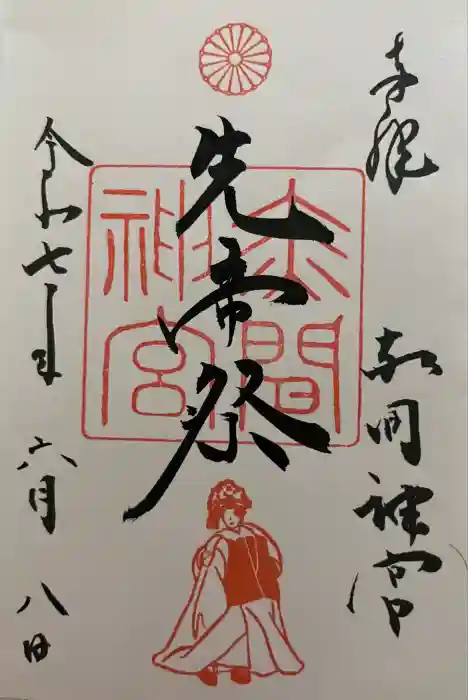 奉拝
赤間神宮
先帝祭
赤間神宮
令和七年
六月
八日